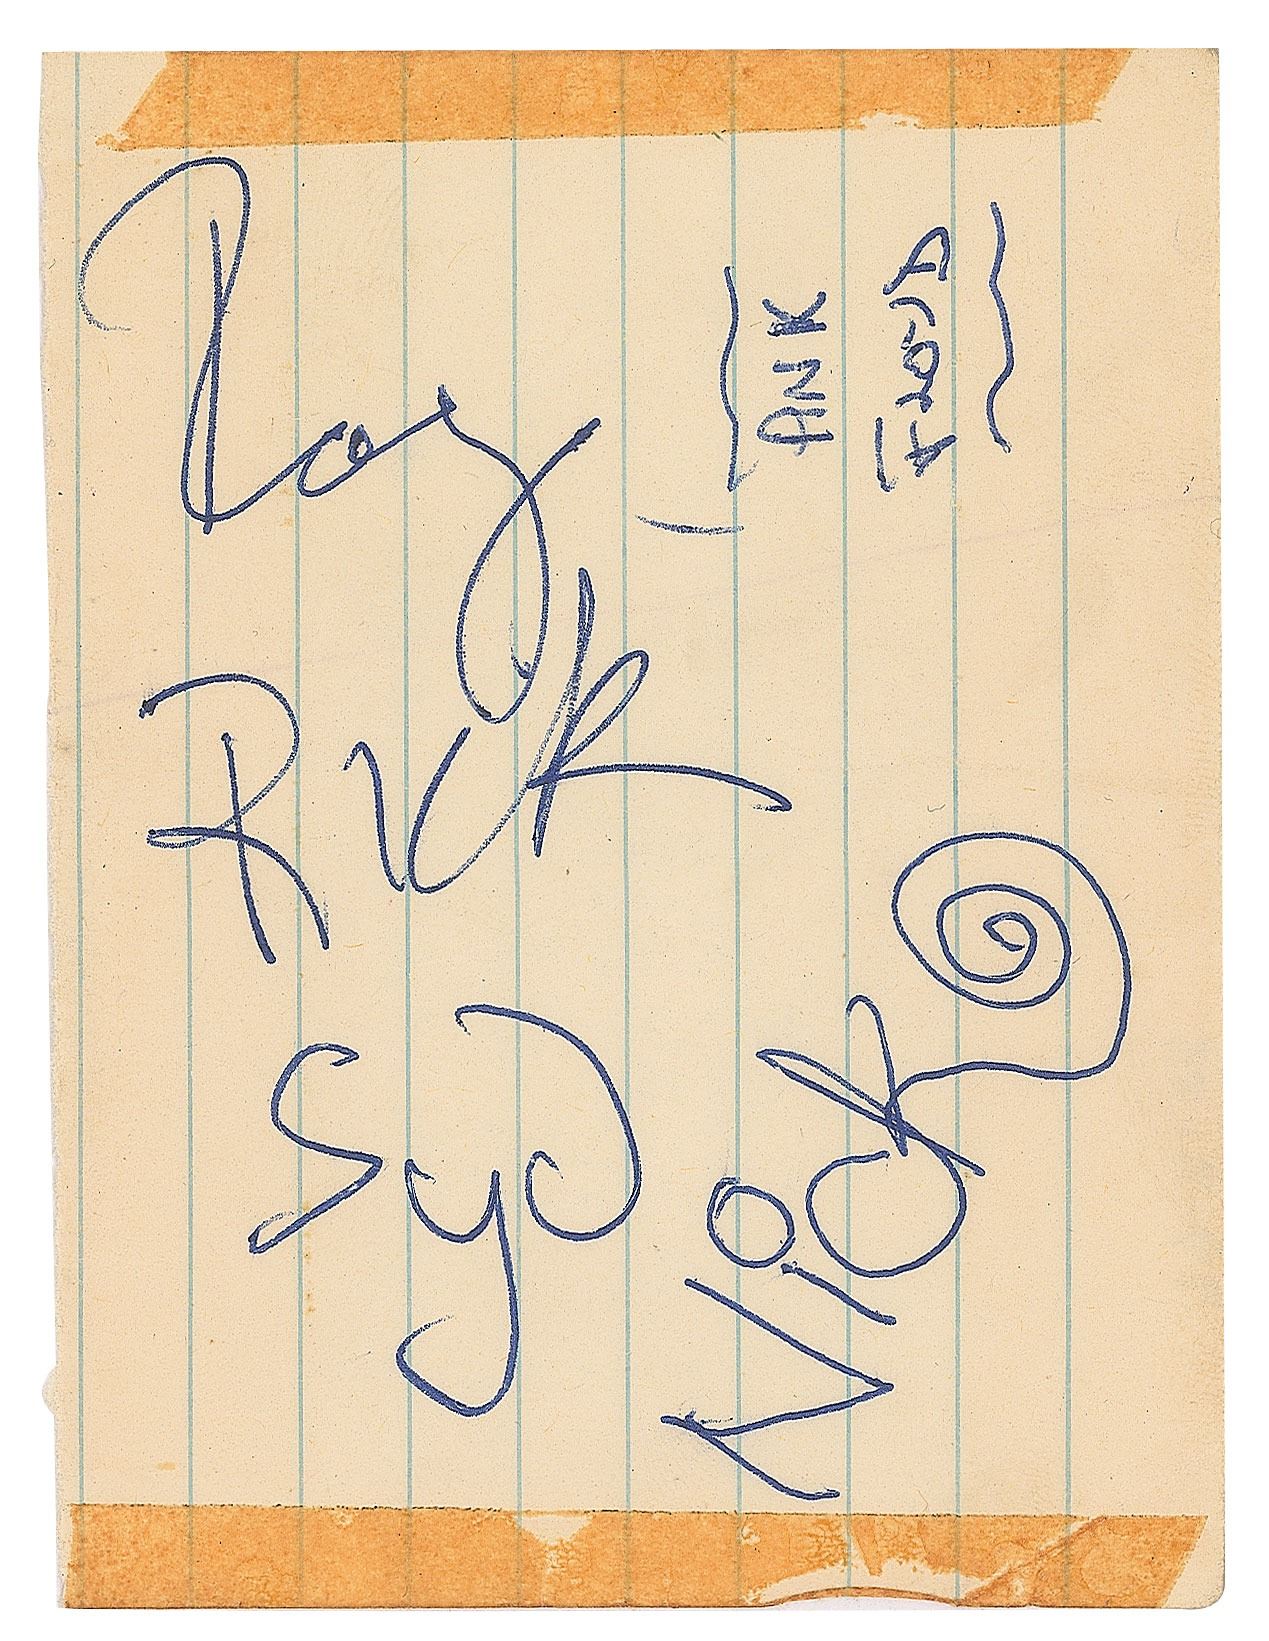 Syd Rick Rog
Nick
PINK
FLOYD